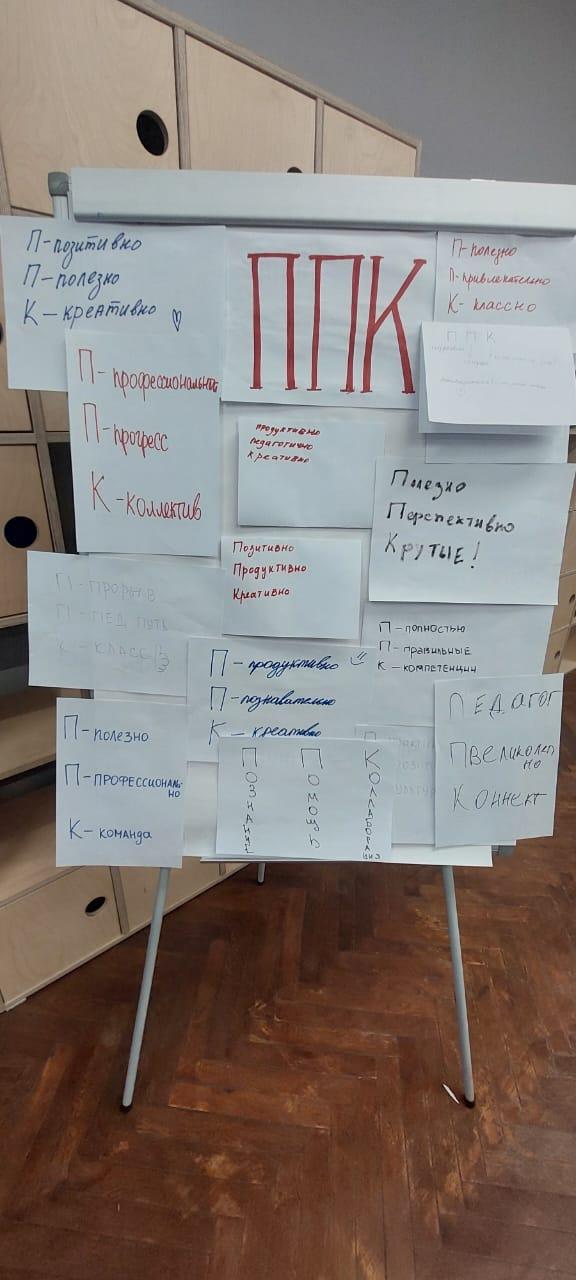 П-позитивно
П-полезно
К-креативно
ППК
П-полезно
П-привлекательно
К-классно
ППК
П-профессиональный
П-прогресс
К-коллектив
Продуктивно
Педагогично
Креативно
Полезно
Перспективно
Крутые!
Позитивно
Продуктивно
Креативно
П-ПРОРЫВ
П-ПЕД ПУТЬ
К-КЛАСС
П-полностью
П-правильные
К-компетенции
П-продуктивно
П-познавательно
К-креативно
ПЕДАГОГ
ПВЕЛИКОЛЕП
НО
КОННЕКТ
П-полезно
П-ПРОФЕССИОНАЛЬ-
НО
К-команда
ПОЗНАНИЕ
ПОМОЩЬ
КОЛЛАБОРАЦИЯ